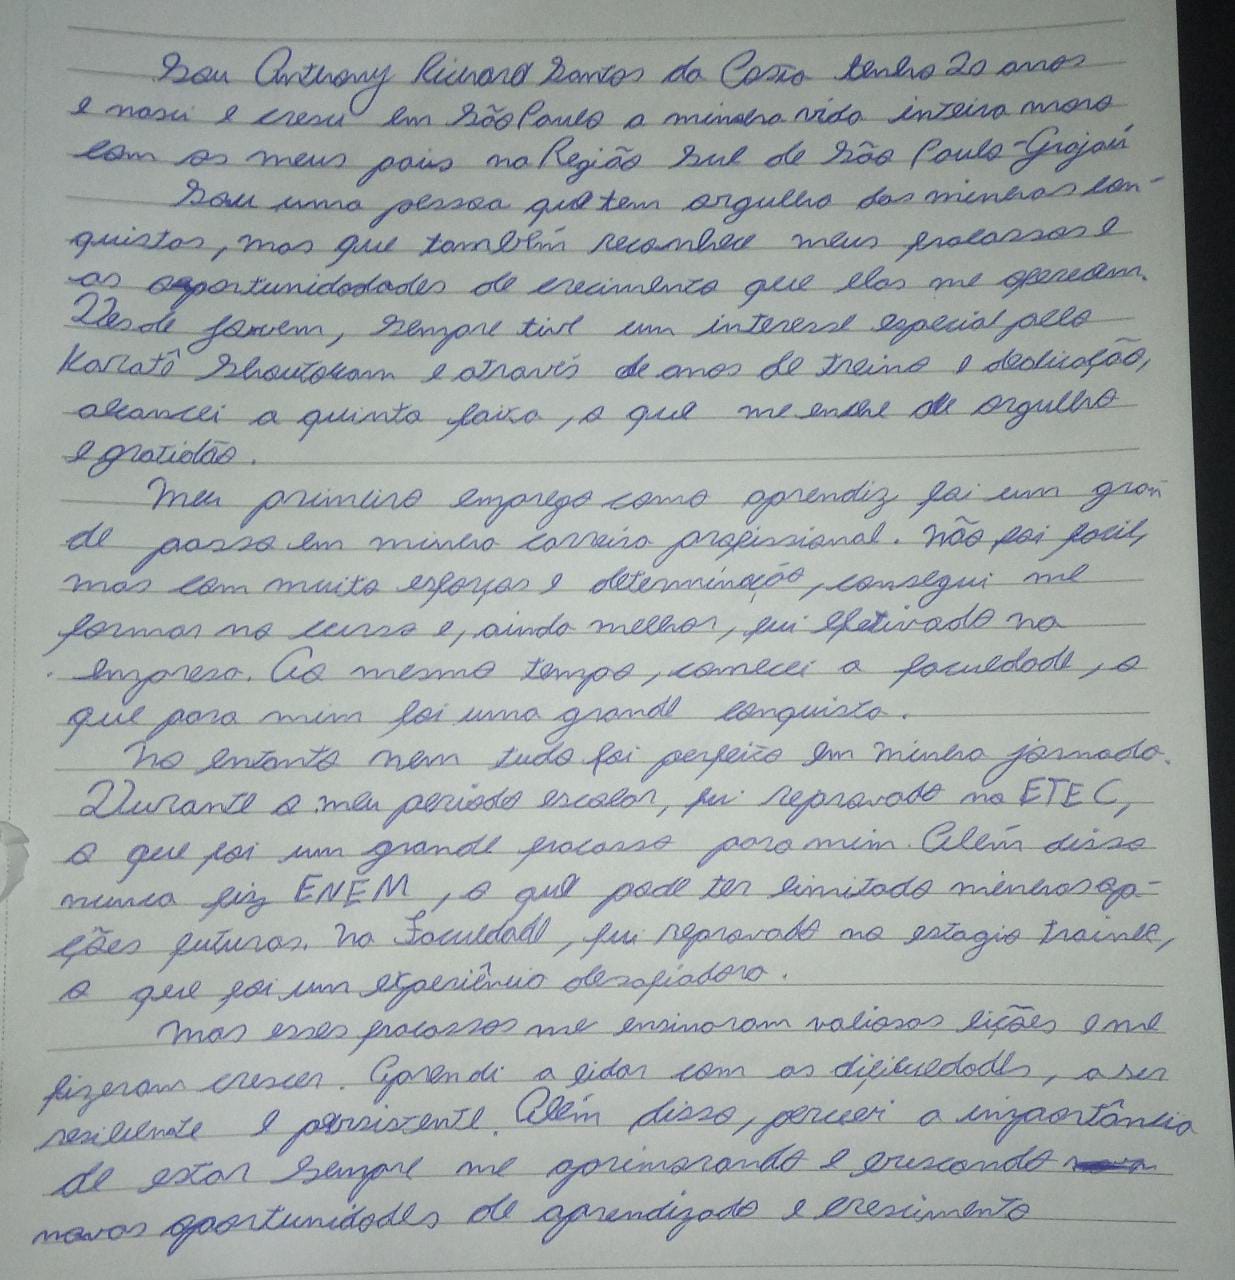 Sou Anthony Richard Santos da Costa tenho 20 anos
e nasci e cresci em São Paulo a minha vida inteira moro
com os meus pais na Região Sul de São Paulo - Grajaú
Sou uma pessoa que tem orgulho das minhas con-
quistas, mas que também reconhece meus fracassos e
as oportunidadades de crecimento que elas me oferecem.
Desde jovem, sempre tive um interesse especial pelo
Karatê Shoutokam e através de anos de treino e dedicação,
alcancei a quinta faixa, o que me enche de orgulho
e gratidão.
Meu primeiro emprego como aprendiz foi um gran
de passo em minha carreira profissional. Não foi facil,
mas com muito esforços e determinação, consegui me
formar no curso e, ainda melhor, fui efetivado na
empresa. Ao mesmo tempo, comecei a faculdade, o
que para mim foi uma grande conquista.
No entanto nem tudo foi perfeito em minha jornada.
Durante o meu periodo escolar, fui reprovado na ETEC,
o que foi um grande fracasso para mim. Além disso
nunca fiz ENEM, o que pode ter limitado minhas op-
ções futuras. Na Faculdade, fui reprovado no estagio trainee,
o que foi um experiência desafiadora.
Mas esses fracassos me ensinaram valiosas lições e me
fizeram crescer. Aprendi a lidar com as dificuldades, a ser
resiliente e persistente. Além disso, percebi a importância
de estar sempre me aprimorando e buscando
novas oportunidades de aprendizado e crescimento